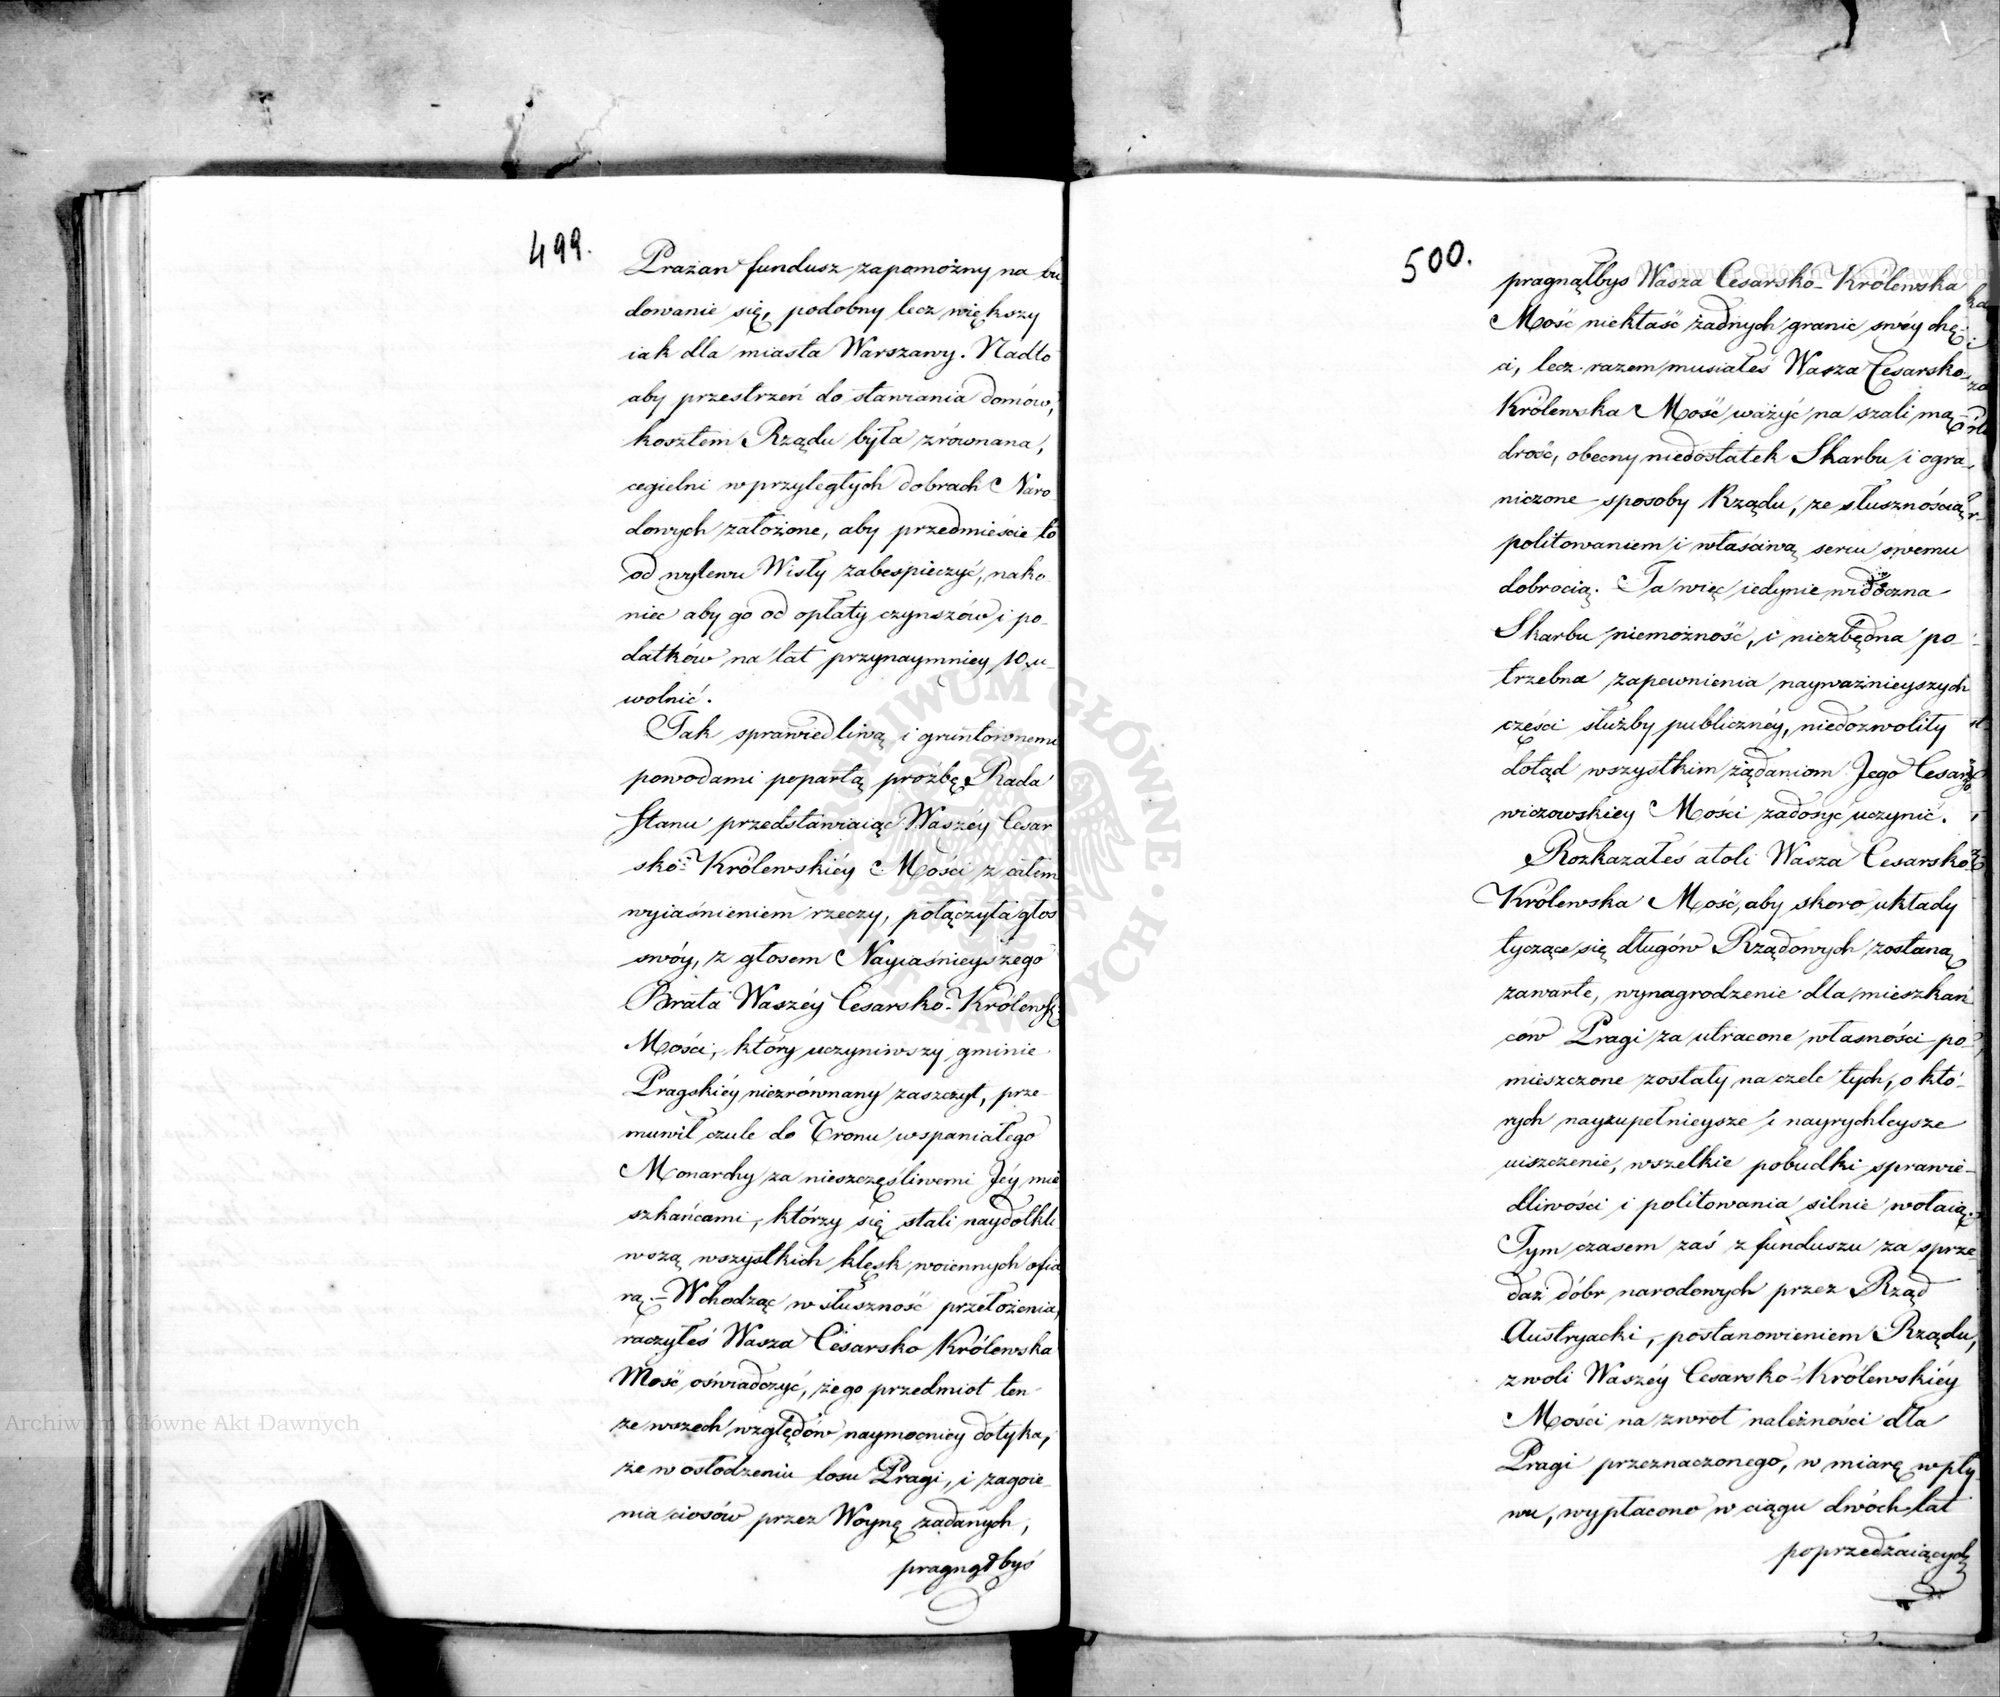 499.
Prażan fundusz zapomożny na bu
dowanie się, podobny lecz większy
iak dla miasta Warszawy. Nadto
aby przestrzeń do stawiania domów,
kosztem Rządu była zrównana,
cegielni w przyległych dobrach Naro-
dowych założone, aby przedmieście to
od wylewu Wisły zabespieczyć, nako-
niec aby go od opłaty czynszów i po-
datków na lat przynaymniey 10. u-
wolnić.
Tak sprawiedliwą i gruntownemi
powodami popartą proźbę Rada
Stanu przedstawiaiąc Waszéy Cesar
sko-Królewskiéy Mości z całem
wyiaśnieniem rzeczy, połączyła głos
swóy, z głosem Nayiaśnieyszego
Brata Waszéy Cesarsko-Królewsk:
Mości, który uczyniwszy gminie
Pragskiéy niezrównany zaszczyt, prze-
muwił czule do Tronu wspaniałego
Monarchy za nieszczęśliwemi Jéy mie
szkańcami, którzy się stali naydotkli
wszą wszystkich klęsk woiennych ofia
rą. – Wchodząc w słuszność przełożenia,
raczyłeś Wasza Cesarsko Królewska
Mość oświadczyć, że go przedmiot ten
ze wszech względów naymocniey dotyka,
że w osłodzeniu losu Pragi, i zagoie-
nia ciosów przez Woynę zadanych,
pragnąłbyś
500.
pragnąłbys Wasza Cesarsko-Królewska
Mość niekłaść żadnych granic swéy chę-
ci, lecz razem musiałeś Wasza Cesarsko-
Królewska Mość ważyć na szali mą-
drość, obecny niedostatek Skarbu i ogra-
niczone sposoby Rządu, ze słusznością
politowaniem i właściwą sercu swemu
dobrocią. Ta więc iedynie widoczna
Skarbu niemożność, i niezbędna po-
trzebna zapewnienia nayważnieyszych
części służby publicznéy, niedozwoliły
dotąd wszystkim żądaniom Jego Cesarze
wiczowskiey Mości zadosyć uczynić.
Rozkazałeś atoli Wasza Cesarsko
Królewska Mość, aby skoro układy
tyczące się długów Rządowych zostaną
zawarte, wynagrodzenie dla mieszkań
ców Pragi za utracone własności po-
mieszczone zostały na czele tych, o któ-
rych nayzupełnieysze i nayrychleysze
uiszczenie, wszelkie pobudki sprawie-
dliwości i politowania silnie wołaią.
Tym czasem zaś z funduszu za sprze
daż dóbr narodowych przez Rząd
Austryacki, postanowieniem Rządu,
z woli Waszéy Cesarsko-Królewskiéy
Mości na zwrot należności dla
Pragi przeznaczonego, w miarę wpły
wu, wypłacono w ciągu dwóch lat
poprzedzaiących
Archiwum Główne Akt Dawnych
Archiwum Główne Akt Dawnych
ARCHIWUM GŁÓWNE AKT DAWNYCH